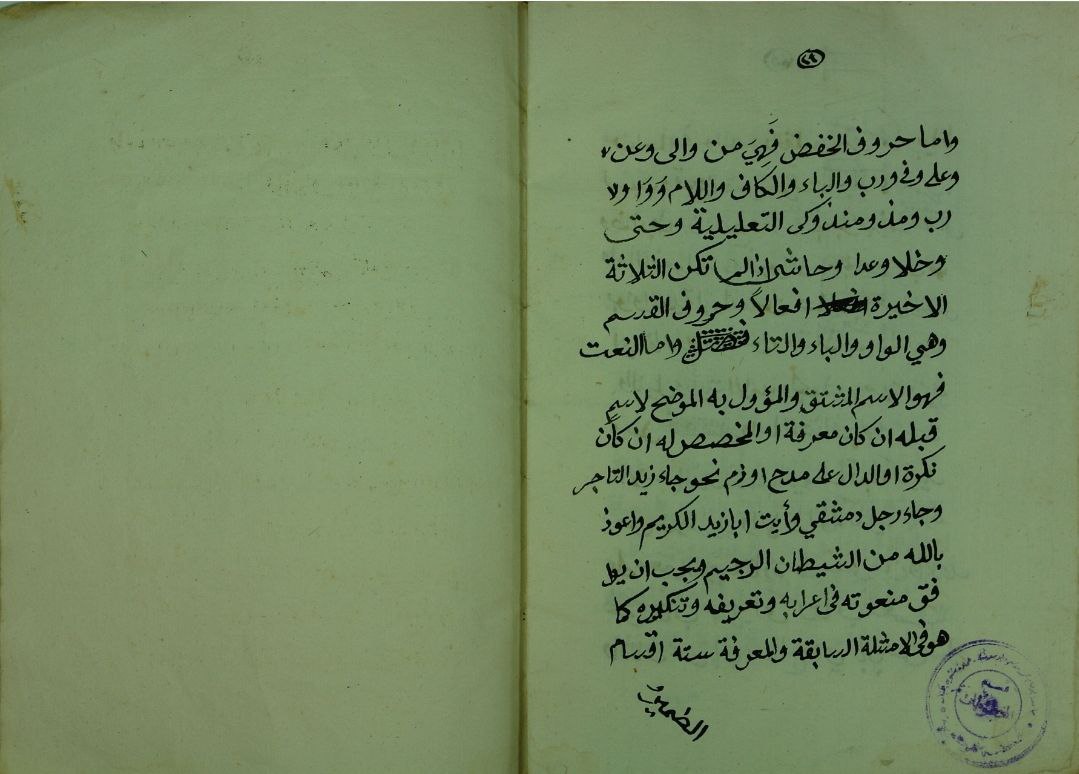 ٢٩
واما حروف الخفض فَهِيَ من والى وعن
وعلى وفي ورب والباء والكاف واللام وَوَا و
رب ومذ ومنذ وكى التعليلية وحتى
وخلا وعدا وحاشى تكن الثلاثة
الاخيرة افعالاً وحروف القسم
وهي الواو والباء والتاء واما النعت
فهو الاسم المشتق والمؤول به الموضح لاسم
قبله ان كان معرفة او المخصص له ان كان
نكرة او الدال على مدح او زم نحو جاء زيد التاجر
وجاء رجل دمشقي وأيت ابا زيد الكريم واعوذ
بالله من الشيطان الرجيم ويجب ان يوا
فق منعوته في اعرابه وتعريفه وتنكيره كما
هو في الامثلة السابقة والمعرفة ستة اقسام
الضمير
قسم
المخطوطات